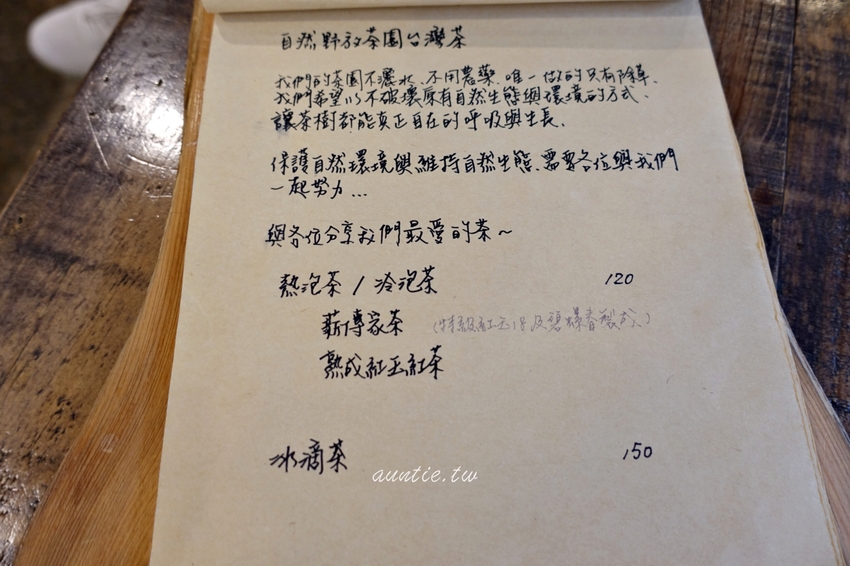 自然野放茶園台灣茶
我們的茶園不灑水、不用農藥、唯一做的只有除草、
我們希望以不破壞原有自然生態與環境的方式、
讓茶樹都能真正自在的呼吸與生長、
保護自然環境與維持自然生態、需要各位與我們
一起努力...
與各位分享我們最愛的茶~
熱泡茶 / 冷泡茶 120
薪傳家茶 (特級紅玉18及碧螺春製成、)
熟成紅玉紅茶
冰滴茶 150
auntie.tw